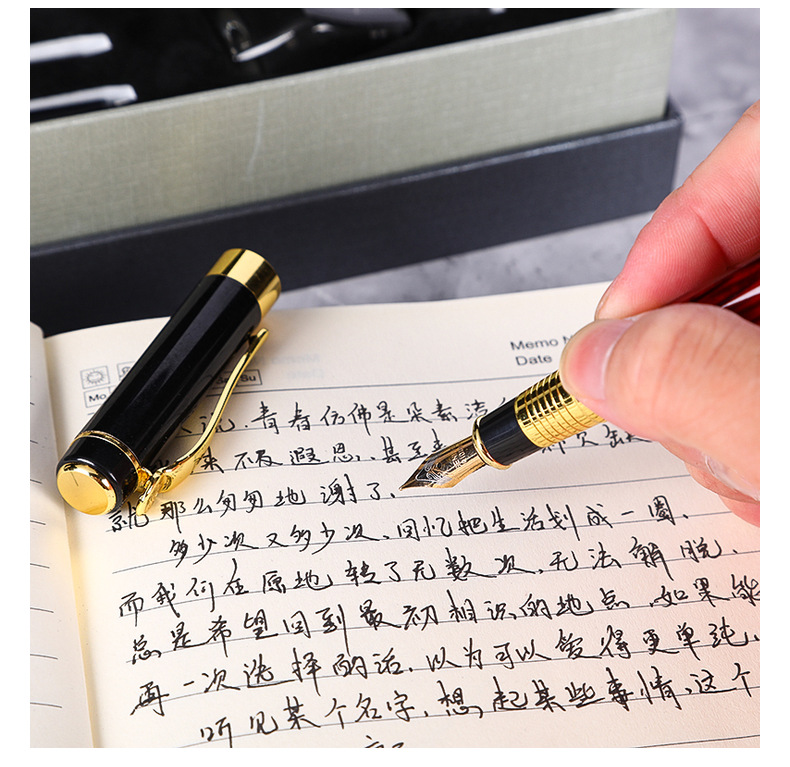 Memo
Date
Mo Su
说，青春仿佛是朵素洁
来不及遐思，甚至来
就那么匆匆地谢了，
多少次又多少次，回忆把生活划成一圈，
而我们在原地转了无数次，无法解脱，
总是希望回到最初相识的地点，如果能
再一次选择的话，以为可以爱得更单纯，
听见某个名字，想起某些事情，这个